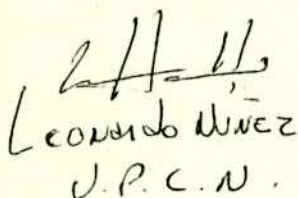 Leonardo Nuñez
U.P.C.N.